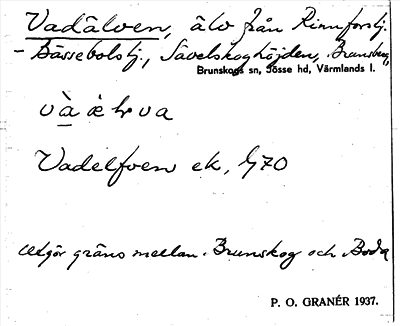 Vadälven, älv från Rinnforssj.
- Bässebolssj., Sävelskoghöjden, Brunsberg,
Brunskogs sn, Jösse hd, Värmlands l.
và æ lr va
Vadelfven ek. G70
Utgör gräns mellan Brunskog och Boda
P. O. GRANÉR 1937.